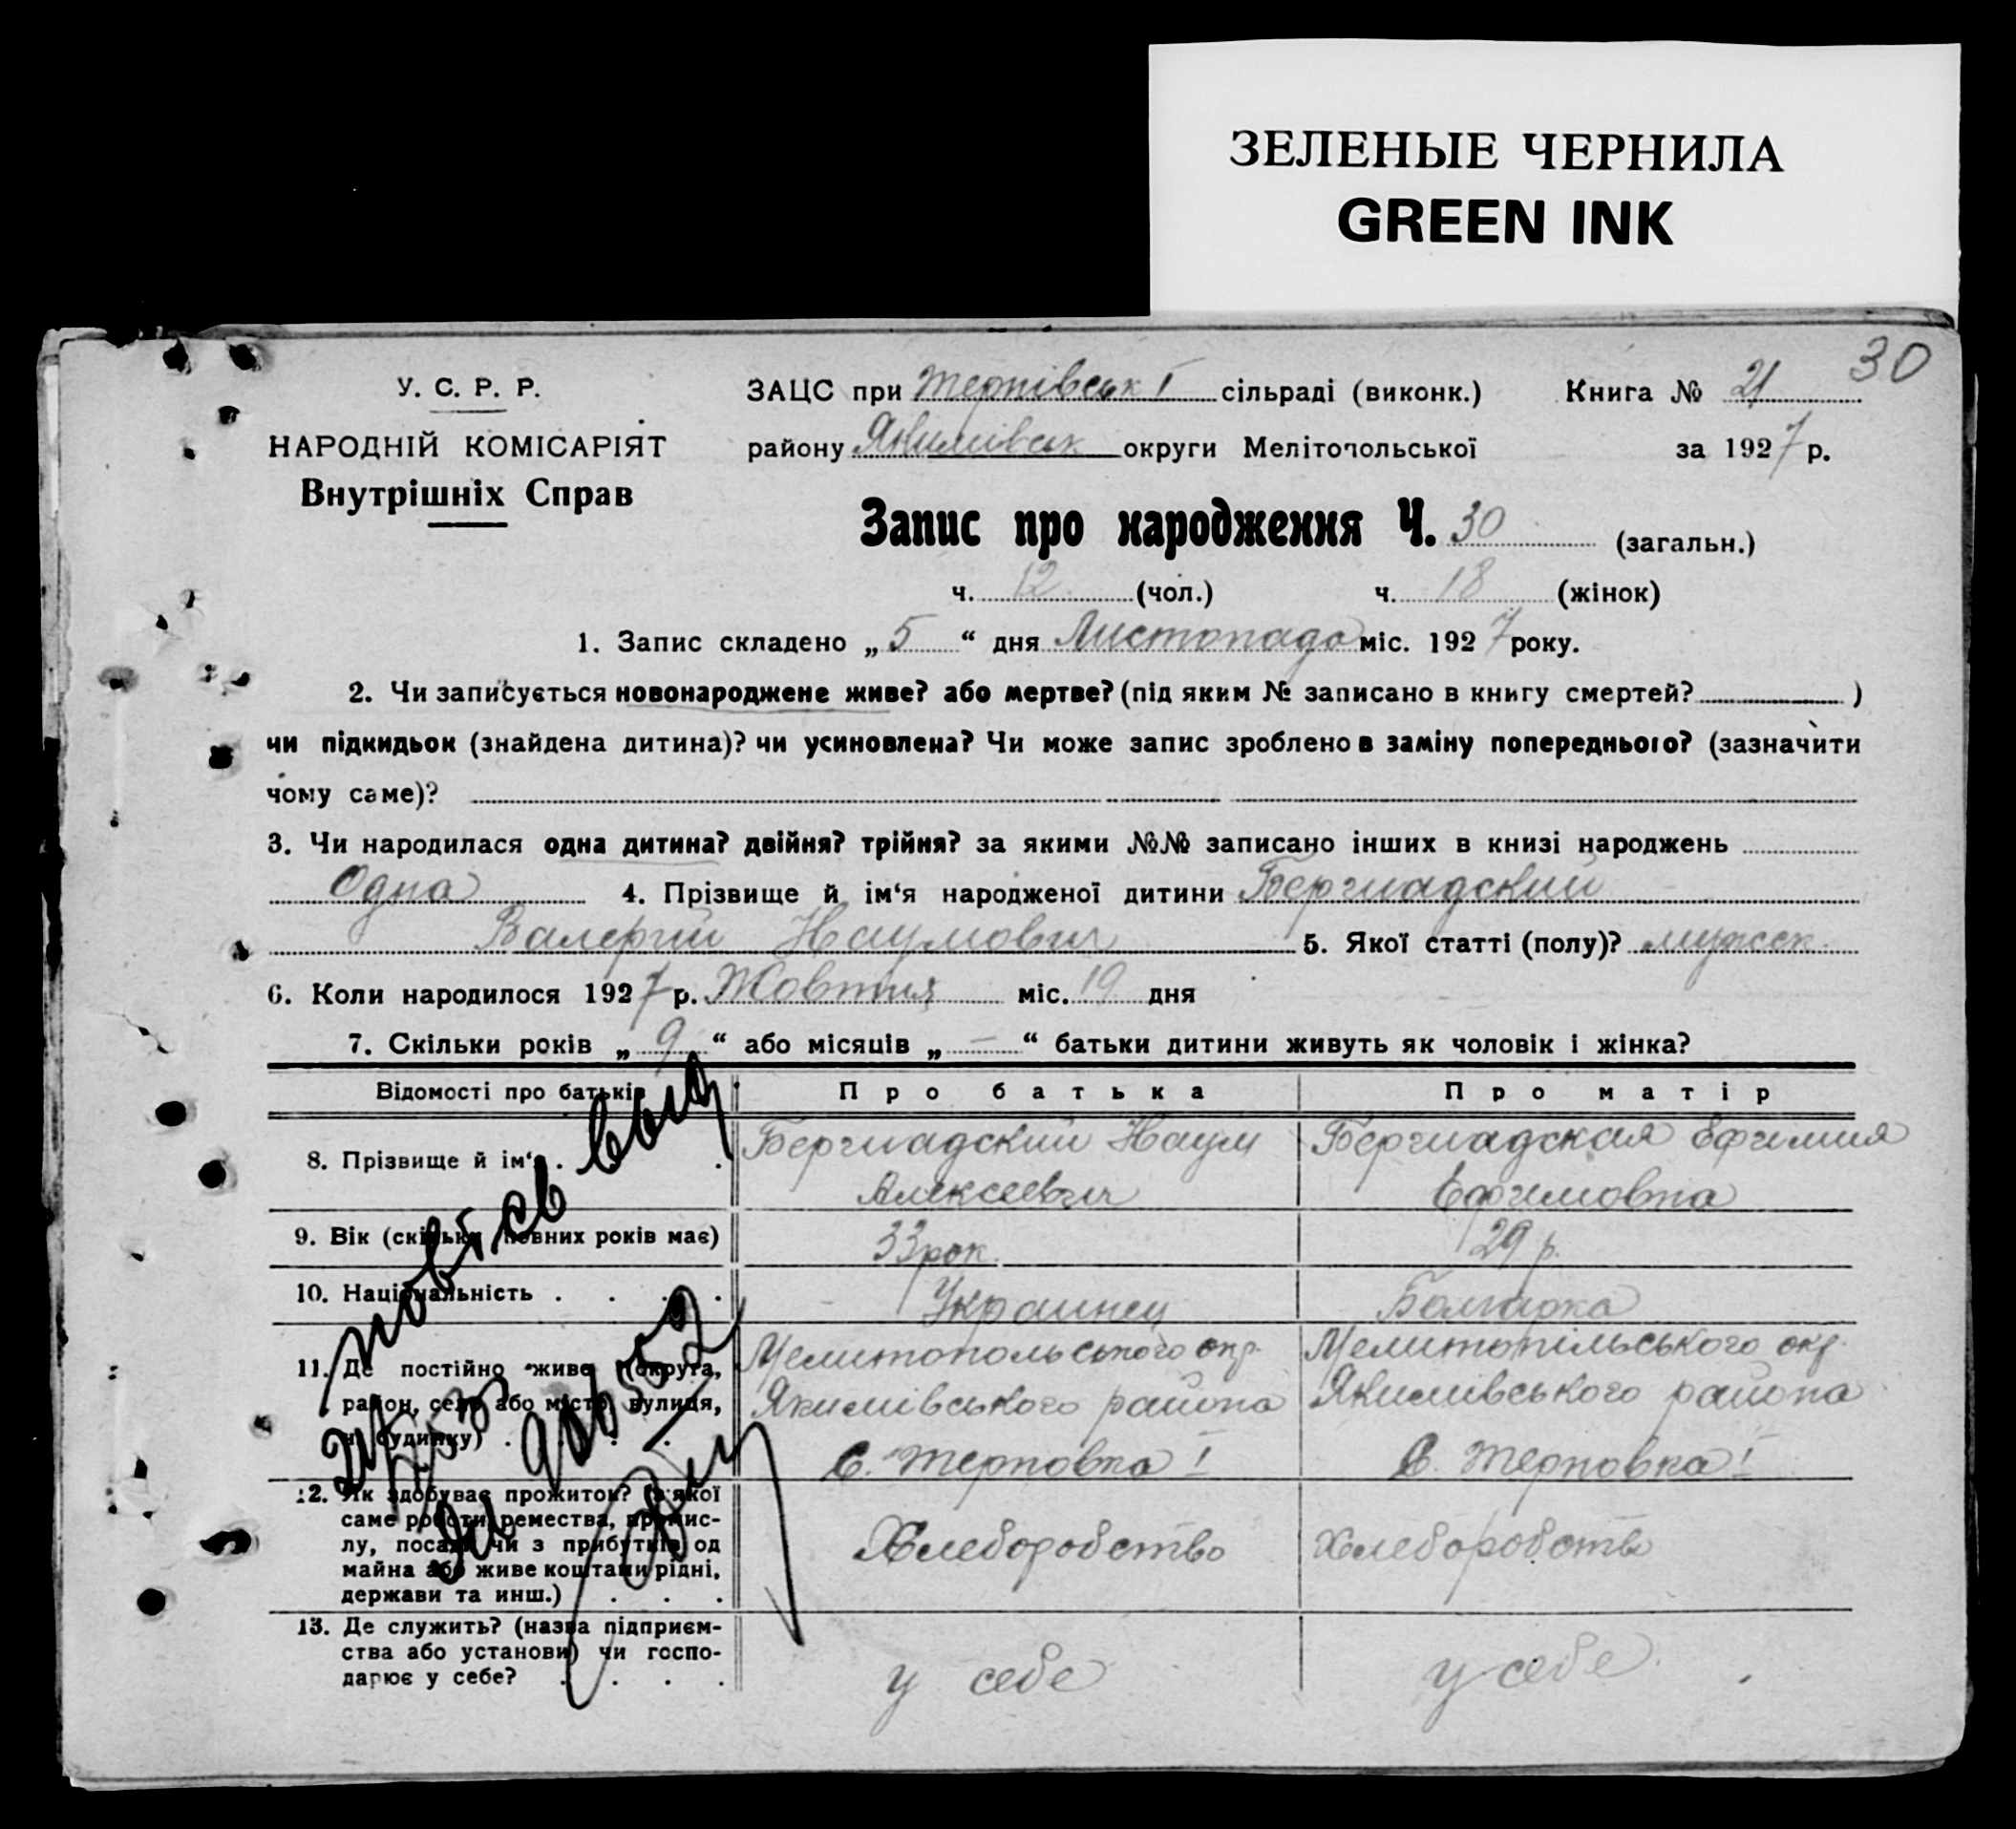 ЗЕЛЕНЫЕ ЧЕРНИЛА
GREEN INK
30
У. С. Р. Р.
НАРОДНІЙ КОМІСАРІЯТ
Внутрішніх Справ
ЗАЦС при Терпівськ I сільраді (виконк.) Книга № 21
району Якимівськ округи Мелітопольської за 1927 р.
Запис про народження Ч. 30 (загальн.)
ч. 12 (чол.) ч. 18 (жінок)
1. Запис складено „ 5 “ дня Листопада міс. 1927 року.
2. Чи записується новонароджене живе? або мертве? (під яким № записано в книгу смертей? )
чи підкидьок (знайдена дитина)? чи усиновлена? Чи може запис зроблено в заміну попереднього? (зазначити
чому саме)?
3. Чи народилася одна дитина? двійня? трійня? за якими №№ записано інших в книзі народжень
Одна 4. Прізвище й ім‘я народженої дитини
Валерий Наумович 5. Якої статті (полу)? мужск
6. Коли народилося 1927 р. Жовтня міс. 19 дня
7. Скільки років „ 9 “ або місяців „ — “ батьки дитини живуть як чоловік і жінка?
Відомості про батьків Про батька Про матір
8. Прізвище й ім‘я Наум Ефимия
Алексеевич Ефимовна
9. Вік (скільки повних років має) 33 рок. 29 р.
10. Національність Украинец Болгарка
11. Де постійно живе (округа, район, село або місто, вулиця, ч. будинку)
Мелитопольського окр. Мелитопільського окр.
Якимівського района Якимівського района
С. Терповка I С. Терповка I
12. Як здобуває прожиток? (з якої
саме роботи, ремества, промис-
лу, посади чи з прибутків од
майна або живе коштами рідні,
держави та инш.)
Хлеборобство Хлеборобство
13. Де служить? (назва підприєм-
ства або установи) чи госпо-
дарює у себе?
у себе у себе